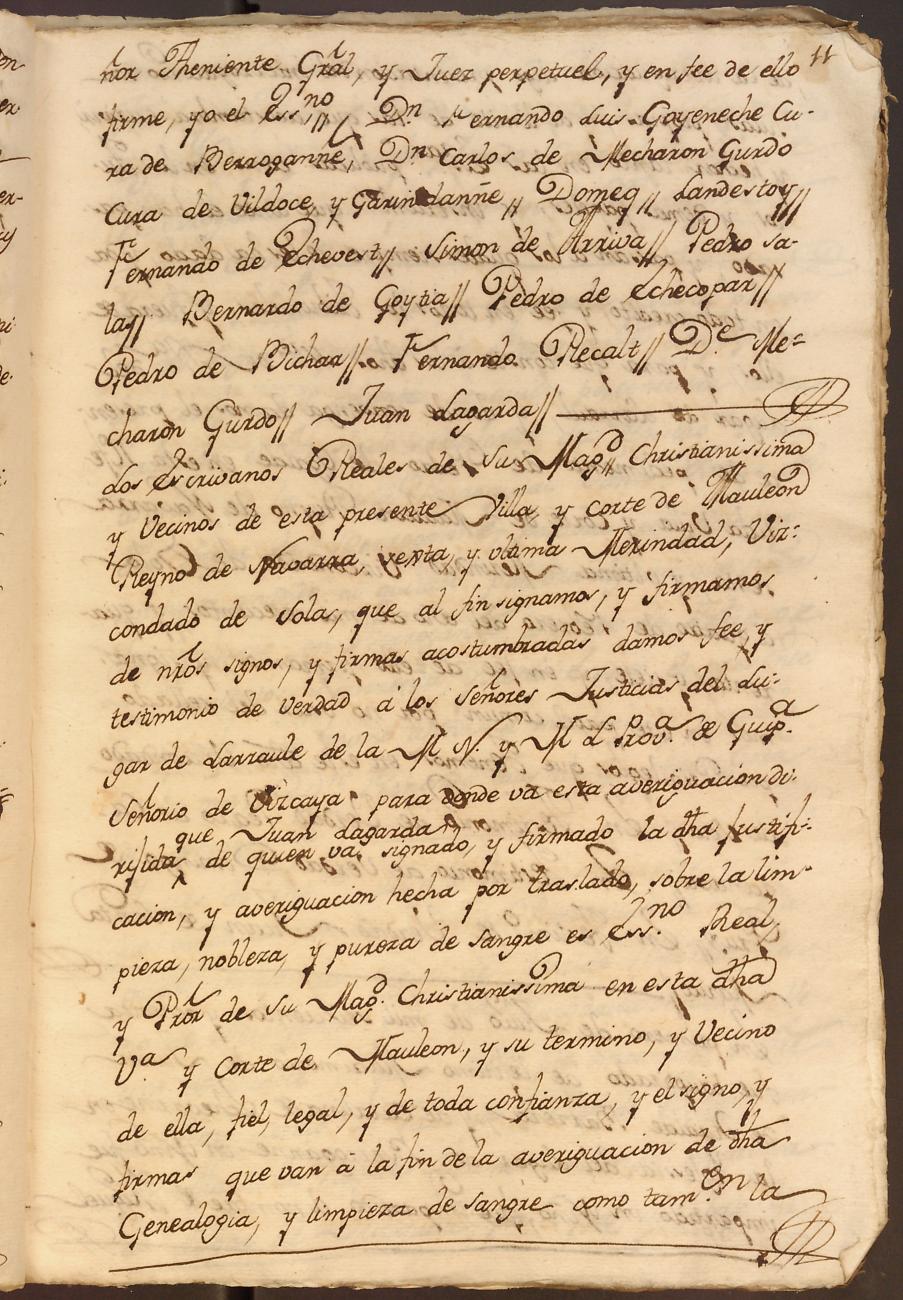 11
ñor Theniente Gral, y Juez perpetuel, y en fee de ello
firme, yo el Ess.no // Dn Fernando Luis Goyeneche Cu-
ra de Berrogañne, Dn Carlos de Mecharon Gurdo
Cura de Vildoce, y Garindanñe // Domeq // Landestoy //
Fernando de Echevest // Simon de Arriva // Pedro Sa-
la // Bernardo de Goytia // Pedro de Echecopar //
Pedro de Bichar // Fernando Recalt // De Me=
charon Gurdo // Juan Lagarda //
Los Escrivanos Reales de su Magd. Christianissima
y Vecinos de esta presente Villa, y Corte de Mauleon
Reyno de Navarra, sexta, y ultima Merindad, Viz=
condado de Sola, que al fin signamos, y firmamos
de nros signos, y firmas acostumbradas damos fee, y
testimonio de verdad á los Señores Justicias del Lu-
gar de Larraule de la M N. y M L Prova. de Guipa.
Señorio de Vizcaya para donde va esta averiguacion di-
que, Juan Lagarda
rijida de quien va signado, y firmado la dha justifi-
cacion, y averiguacion hecha por traslado, sobre la lim-
pieza, nobleza, y pureza de sangre es Ess.no Real,
y Pror de su Magd. Christianissima en esta dha
Va. y Corte de Mauleon, y su termino, y Vecino
de ella, fiel, legal, y de toda confianza, y el signo, y
firmas que van á la fin de la averiguacion de dha
Genealogia, y limpieza de sangre como tam.en la